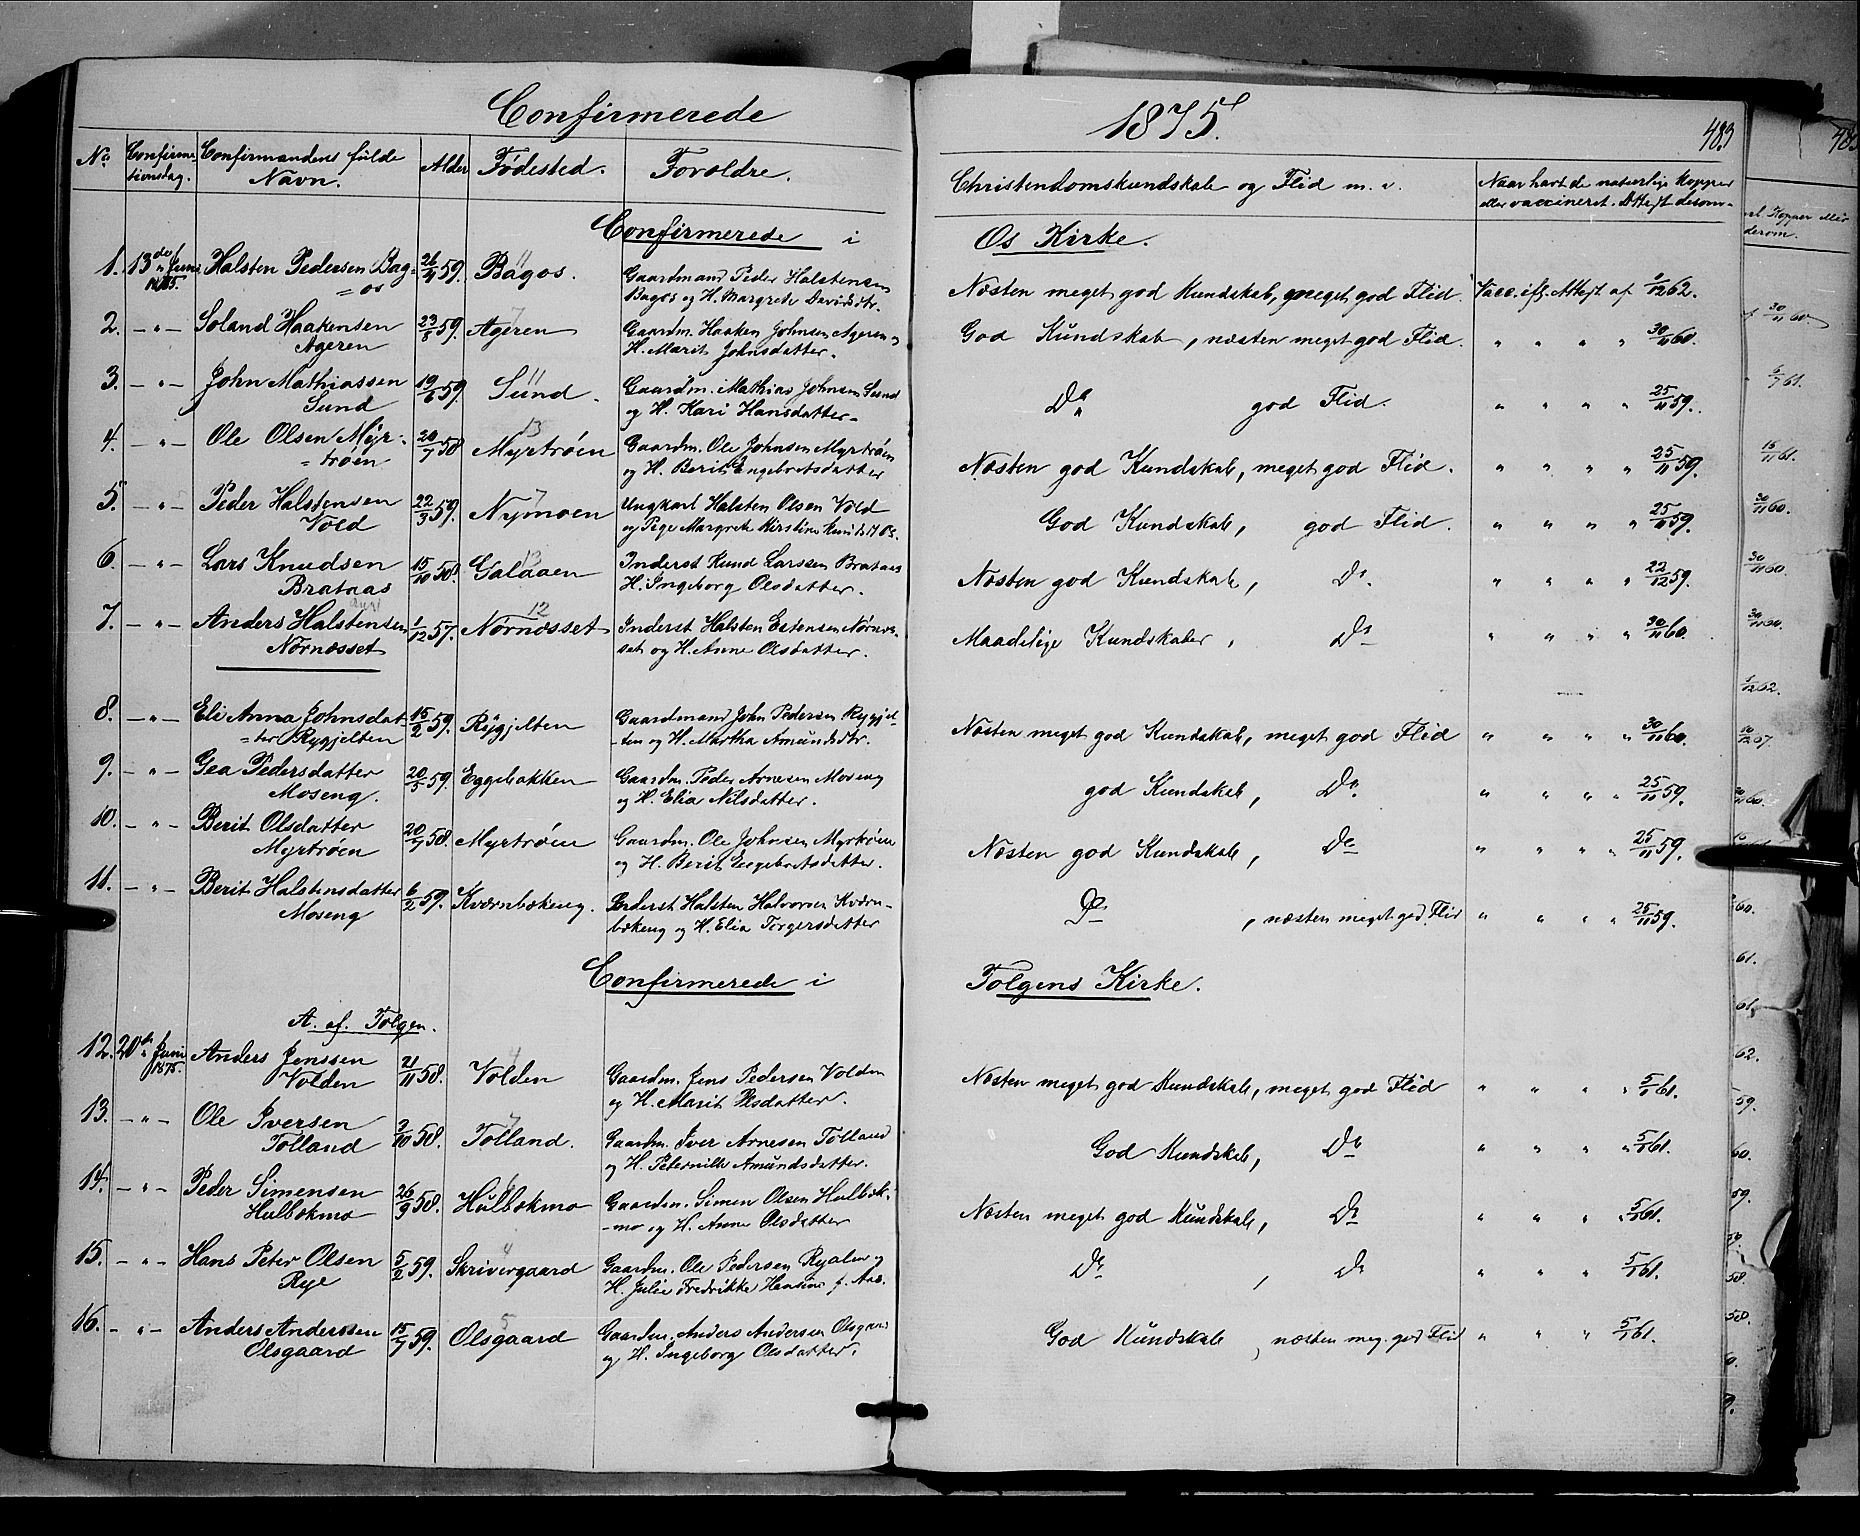 Confirmerede
1875.
483
No.
Confirma-
tionsdag.
Confirmandens fulde
Navn.
Alder
Fødested.
Forældre.
Christendomskundskab og Flid m. v.
Naar havt de naturlige Kopper
eller vaccineret. Attest derom.
Confirmerede i
Os Kirke.
1. 13de Juni Halsten Pedersen Bag- 26/4 59. Bagos. Gaardmand Peder Halstensen
1875. =os Bagos og H. Margrede Davidsdtr.
Næsten meget god Kundskab, meget god Flid. Vacc. efl. Attest af 1/12 62.
2. - " - Soland Haakensen 23/8 59. Ageren Gaardm. Haaken Johnsen Ageren og
Ageren H. Marit Johnsdatter.
God Kundskab, næsten meget god Flid. " " " " 30/11 60.
3. - " - John Mathiassen 19/6 59. Sund. Gaardm. Mathias Johnsen Sund
Sund og H. Kari Hansdatter.
Do god Flid. " " " " 25/11 59.
4. - " - Ole Olsen Myr- 20/7 58 Myrtrøen Gaardm. Ole Johnsen Myrtrøen
=trøen og H. Berit Engebretsdatter
Næsten god Kundskab, meget god Flid. " " " " 25/11 59.
5. - " - Peder Halstensen 22/3 59. Nymoen Ungkarl Halsten Olsen Vold
Vold og Pige Margrete Kirstine
God Kundskab, god Flid. " " " " 25/11 59.
6. - " - Lars Knudsen 15/10 58. Galaaen Inderst Knud Larssen Brataas
Brataas H. Ingeborg Olsdatter.
Næsten god Kundskab, Do. " " " " 22/12 59.
7. - " - Anders Halstensen 1/12 57. Nørnæsset Inderst Halsten Estensen Nørnæs-
Nørnæsset set og H. Anne Olsdatter.
Maadelige Kundskaber, Do " " " " 30/11 60.
8. - " - Eli Anna Johnsdat- 15/2 59. Rygjelten Gaardmand John Pedersen Rygjel-
=ter Rygjelten -ten og H. Martha Amundsdtr.
Næsten meget god Kundskab, meget god Flid " " " " 30/11 60.
9. - " - Gea Pedersdatter 20/5 59. Eggebakken Gaardm. Peder Arnesen Moseng
Moseng. og H. Elia Nilsdatter.
god Kundskab, Do. " " " " 25/11 59.
10. - " - Berit Olsdatter 20/7 58. Myrtrøen Gaardm. Ole Johnsen Myrtrøen
Myrtrøen og H. Berit Engebretsdatter.
Næsten god Kundskab, Do " " " " 25/11 59.
11. - " - Berit Halstensdatter 6/2 59. Kværnbækeng. Inderst Halsten Halvorsen Kværn-
Moseng bækeng og H. Elia Torgersdatter
Do , næsten meget god Flid " " " " 25/11 59.
Confirmerede i
Tolgens Kirke.
A. af Tolgen.
12. 20de Juni Anders Jenssen 21/11 58. Volden Gaardm. Jens Pedersen Volden
1875. Volden og H. Marit Olsdatter.
Næsten meget god Kundskab, meget god Flid " " " " 5/1 61.
13. - " - Ole Iversen 3/10 58. Tolland. Gaardm. Iver Arnesen Tolland
Tolland og H. Peternille Amundsdatter.
God Kundskab, Do " " " " 5/1 61.
14. - " - Peder Simensen 26/9 58. Hulbækmo Gaardm. Simen Olsen Hulbæk-
Hulbækmo -mo og H. Anne Olsdatter
Næsten meget god Kundskab, Do " " " " 5/1 61.
15. - " - Hans Peter Olsen 5/2 59. Skrivergaard Gaardm. Ole Pedersen Ryalen og
Rye H. Julie Fredrikke Hansine f. Aas.
Do , Do " " " 5/1 61.
16. - " - Anders Andersen 15/7 59. Olsgaard Gaardm. Anders Andersen Olsgaard
Olsgaard og H. Ingeborg Olsdatter.
God Kundskab, næsten meg. god Flid " " " 5/1 61.